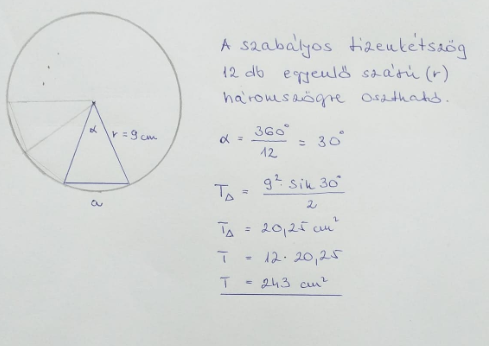 A szabályos tizenkétszög
12 db egyenlő szárú (r)
háromszögre osztható.
α = 360° / 12 = 30°
T△ = 9² · sin 30° / 2
T△ = 20,25 cm²
T = 12 · 20,25
T = 243 cm²
α
r = 9 cm
a